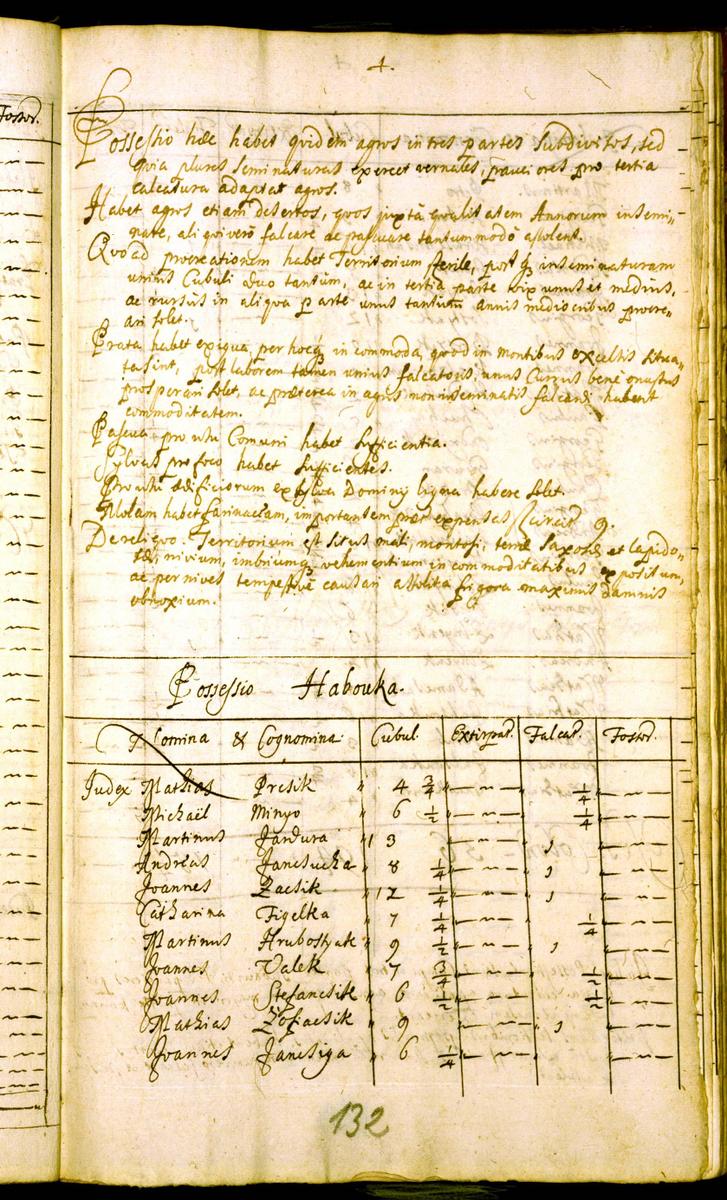 Fostor.
4.
Possessio hæc habet quidem agros in tres partes subdivisos, sed
quia plures seminaturas exercet vernales, pauciores pro tertia
calcatura adaptat agros.
Habet agros etiam desertos, quos juxtà qualitatem Annorum insemi-
nare, aliqui verò falcare ac pascuare tantummodò assolent.
Quoad procreationem habet Territorium sterile, post inseminaturam
unius Cubuli duo tantum, ac in tertia parte vix unus et medius,
ac rursus in aliqua parte unus tantum annis mediocribus procre-
ari solet.
Prata habet exigua, per hocq incommoda, quod in montibus excelsis situa-
ta sint, post laborem tamen unius falcatoris, unus Currus benè onustus
prosperari solet, ac præterea in agris non inseminatis falcandi habent
commoditatem.
Pascua pro usu Comuni habet Sufficientia.
Sylvas pro foco habet Sufficientes.
Pro usu ædificiorum ex Sylva Dominÿ ligna habere solet.
Molam habet farinaceam, importantem præter expensas 9.
De reliquo Territorium est situs mali, montosi, terræ Saxosæ et lapido-
sæ, nivium, imbriumq vehementium incommoditatibus expositum,
ac per nives tempestivè causari assolita frigora maximis damnis
obnoxium.
Possessio Habouka.
Nomina & Cognomina Cubul. Extirpat. Falcat. Fostor.
Judex Mathias Presik " 4 3/4 1/4
Michaël Minyo " 6 1/2 1/4
Martinus Jandura " 13 1
Andreas Jancsucha " 8 1/4 1
Joannes Zacsik " 12 1/4 1
Catharina Figelka " 7 1/4 1/4
Martinus Hrubosyak " 9 1/2 1
Joannes Valek " 7 3/4 1/2
Joannes Stefancsik " 6 1/2 1/2
Mathias " 9 1
Joannes Jancsiga " 6 1/4
132